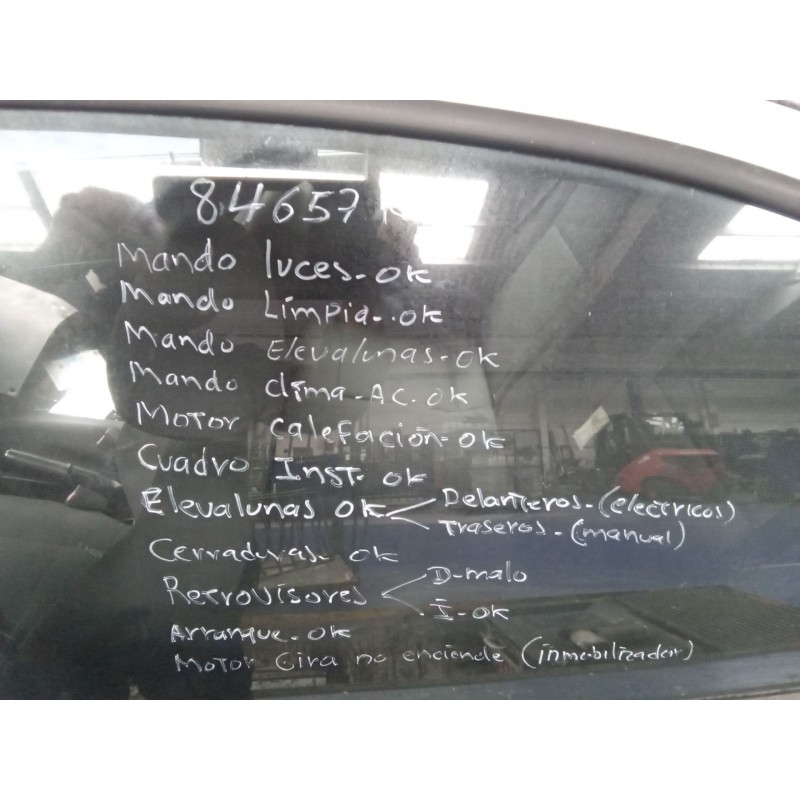 84657
Mando luces-OK
Mando Limpia-.OK
Mando Elevalunas-OK
Mando clima-AC.OK
Motor calefación-OK
Cuadro Inst. OK
Elevalunas OK Delanteros-(eléctricos)
Traseros-(manual)
Cerraduras- OK
Retrovisores D-malo
I-OK
Arranque-OK
Motor Gira no enciende (inmobilizador)